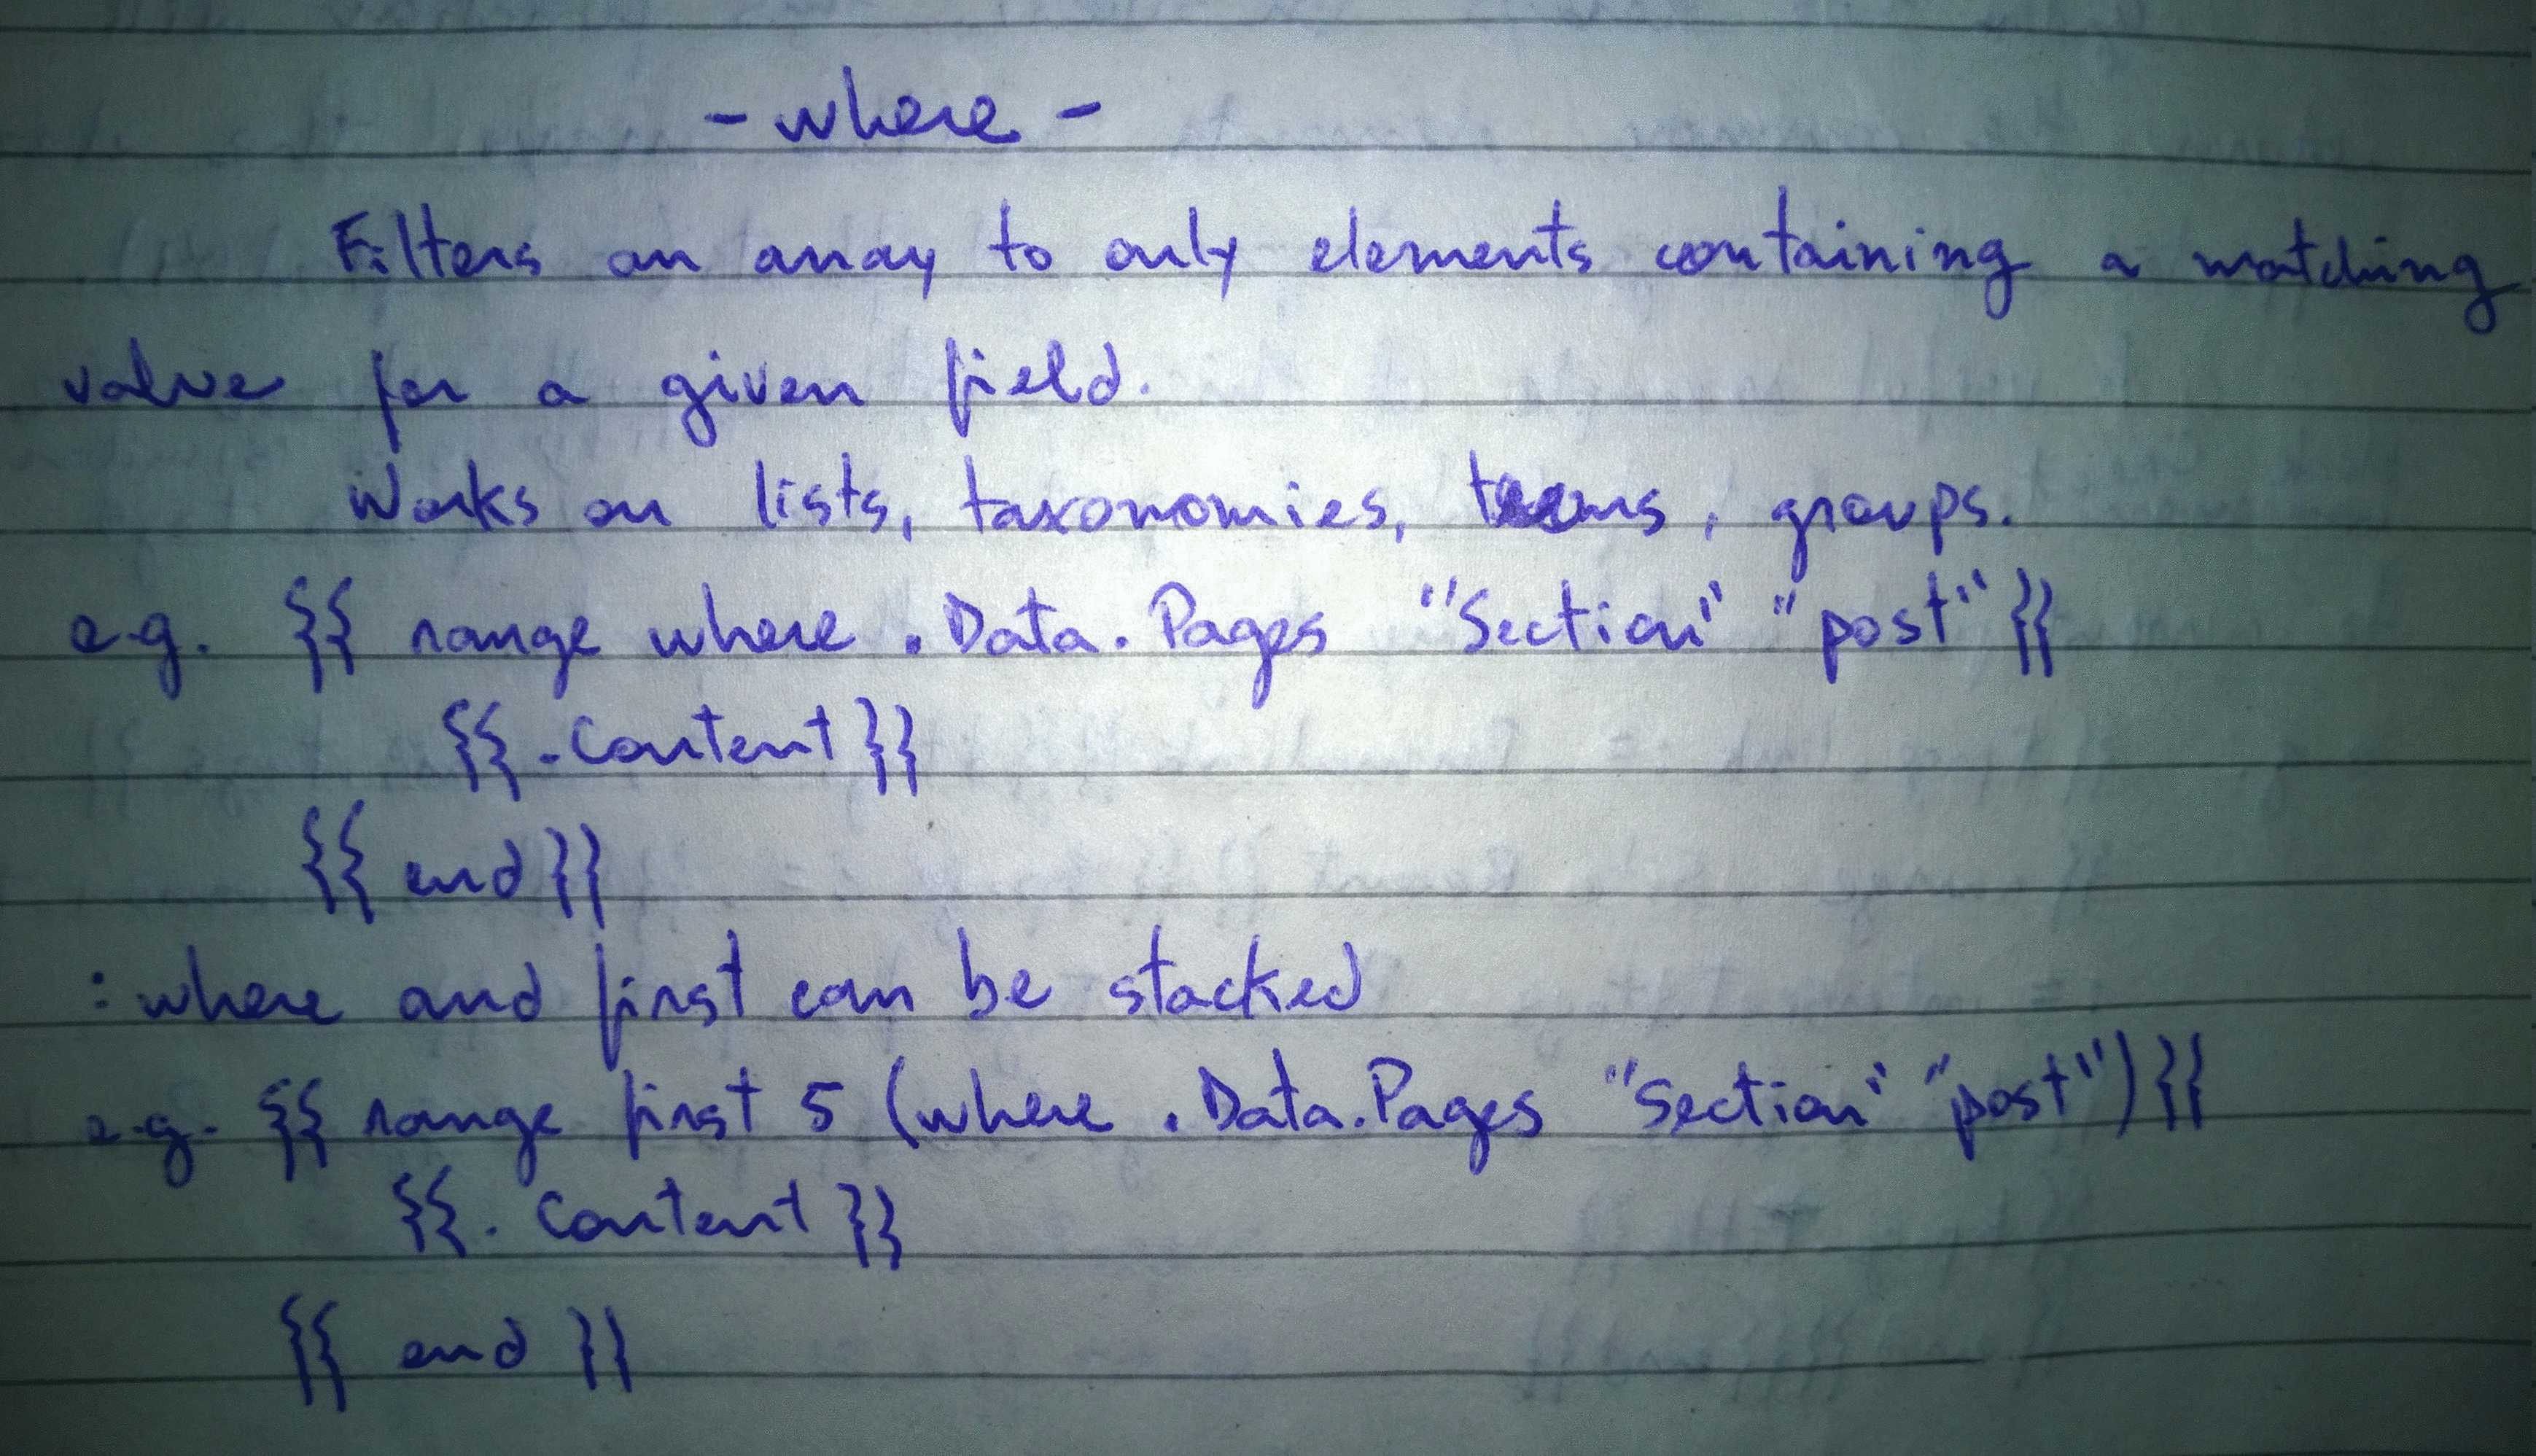 - where -
Filters an array to only elements containing a matching
value for a given field.
Works on lists, taxonomies, terms, groups.
e.g. {{ range where .Data.Pages "Section" "post" }}
{{ .Content }}
{{ end }}
: where and first can be stacked
e.g. {{ range first 5 (where .Data.Pages "Section" "post") }}
{{ . Content }}
{{ end }}